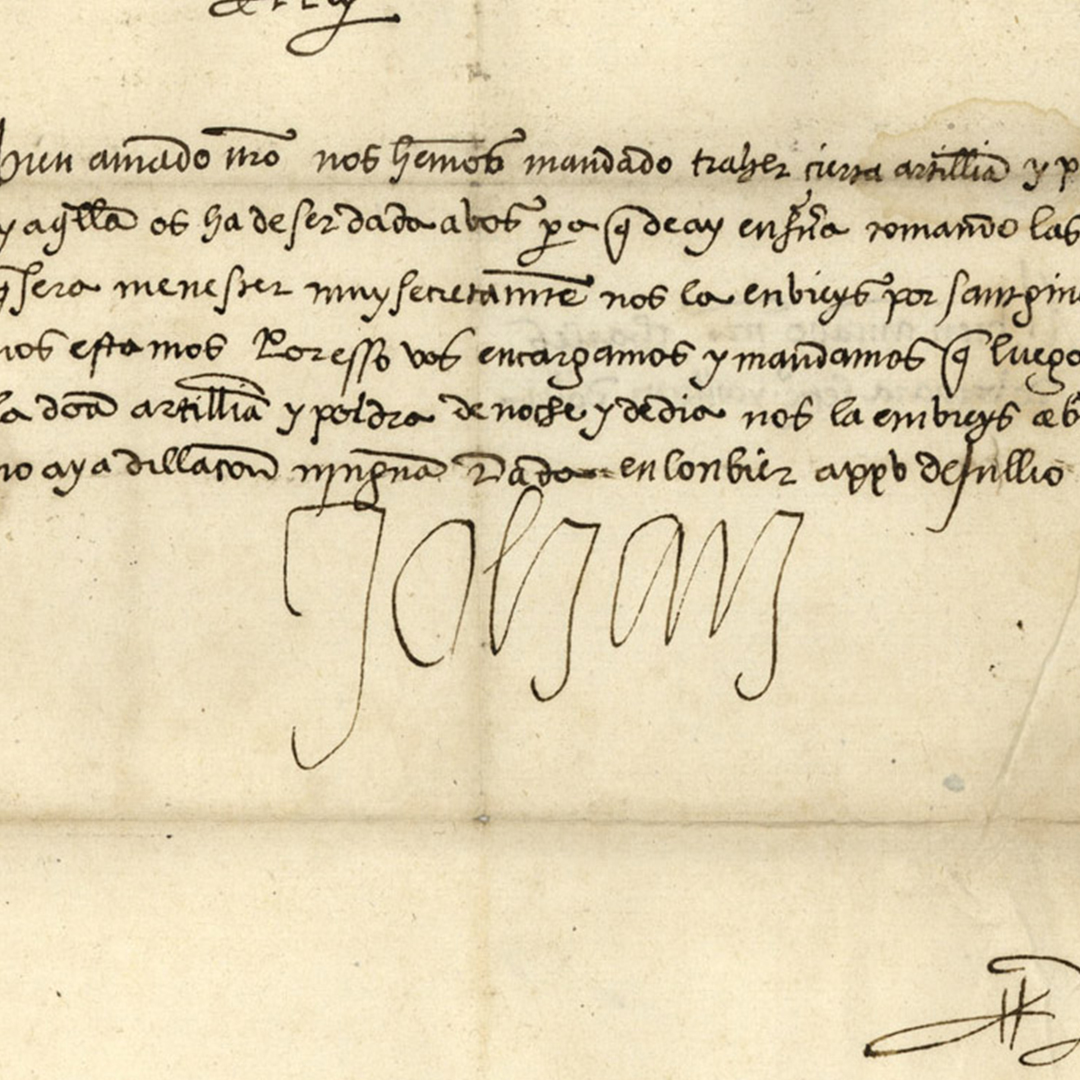 el Rey
bien amado nro nos hemos mandado traher cierta artillia y p
y aqlla os ha de ser dada a vos pa q de ay en fuera tomando las
q sera menester muy secretamte nos la enbieys por sant gin
nos estamos Por esso vos encargamos y mandamos q luego
la dcha artillia y poldra de noche y de dia nos la embieys
no aya dillacon ninguna Dada en lonbier a xxv de jullio
Johan